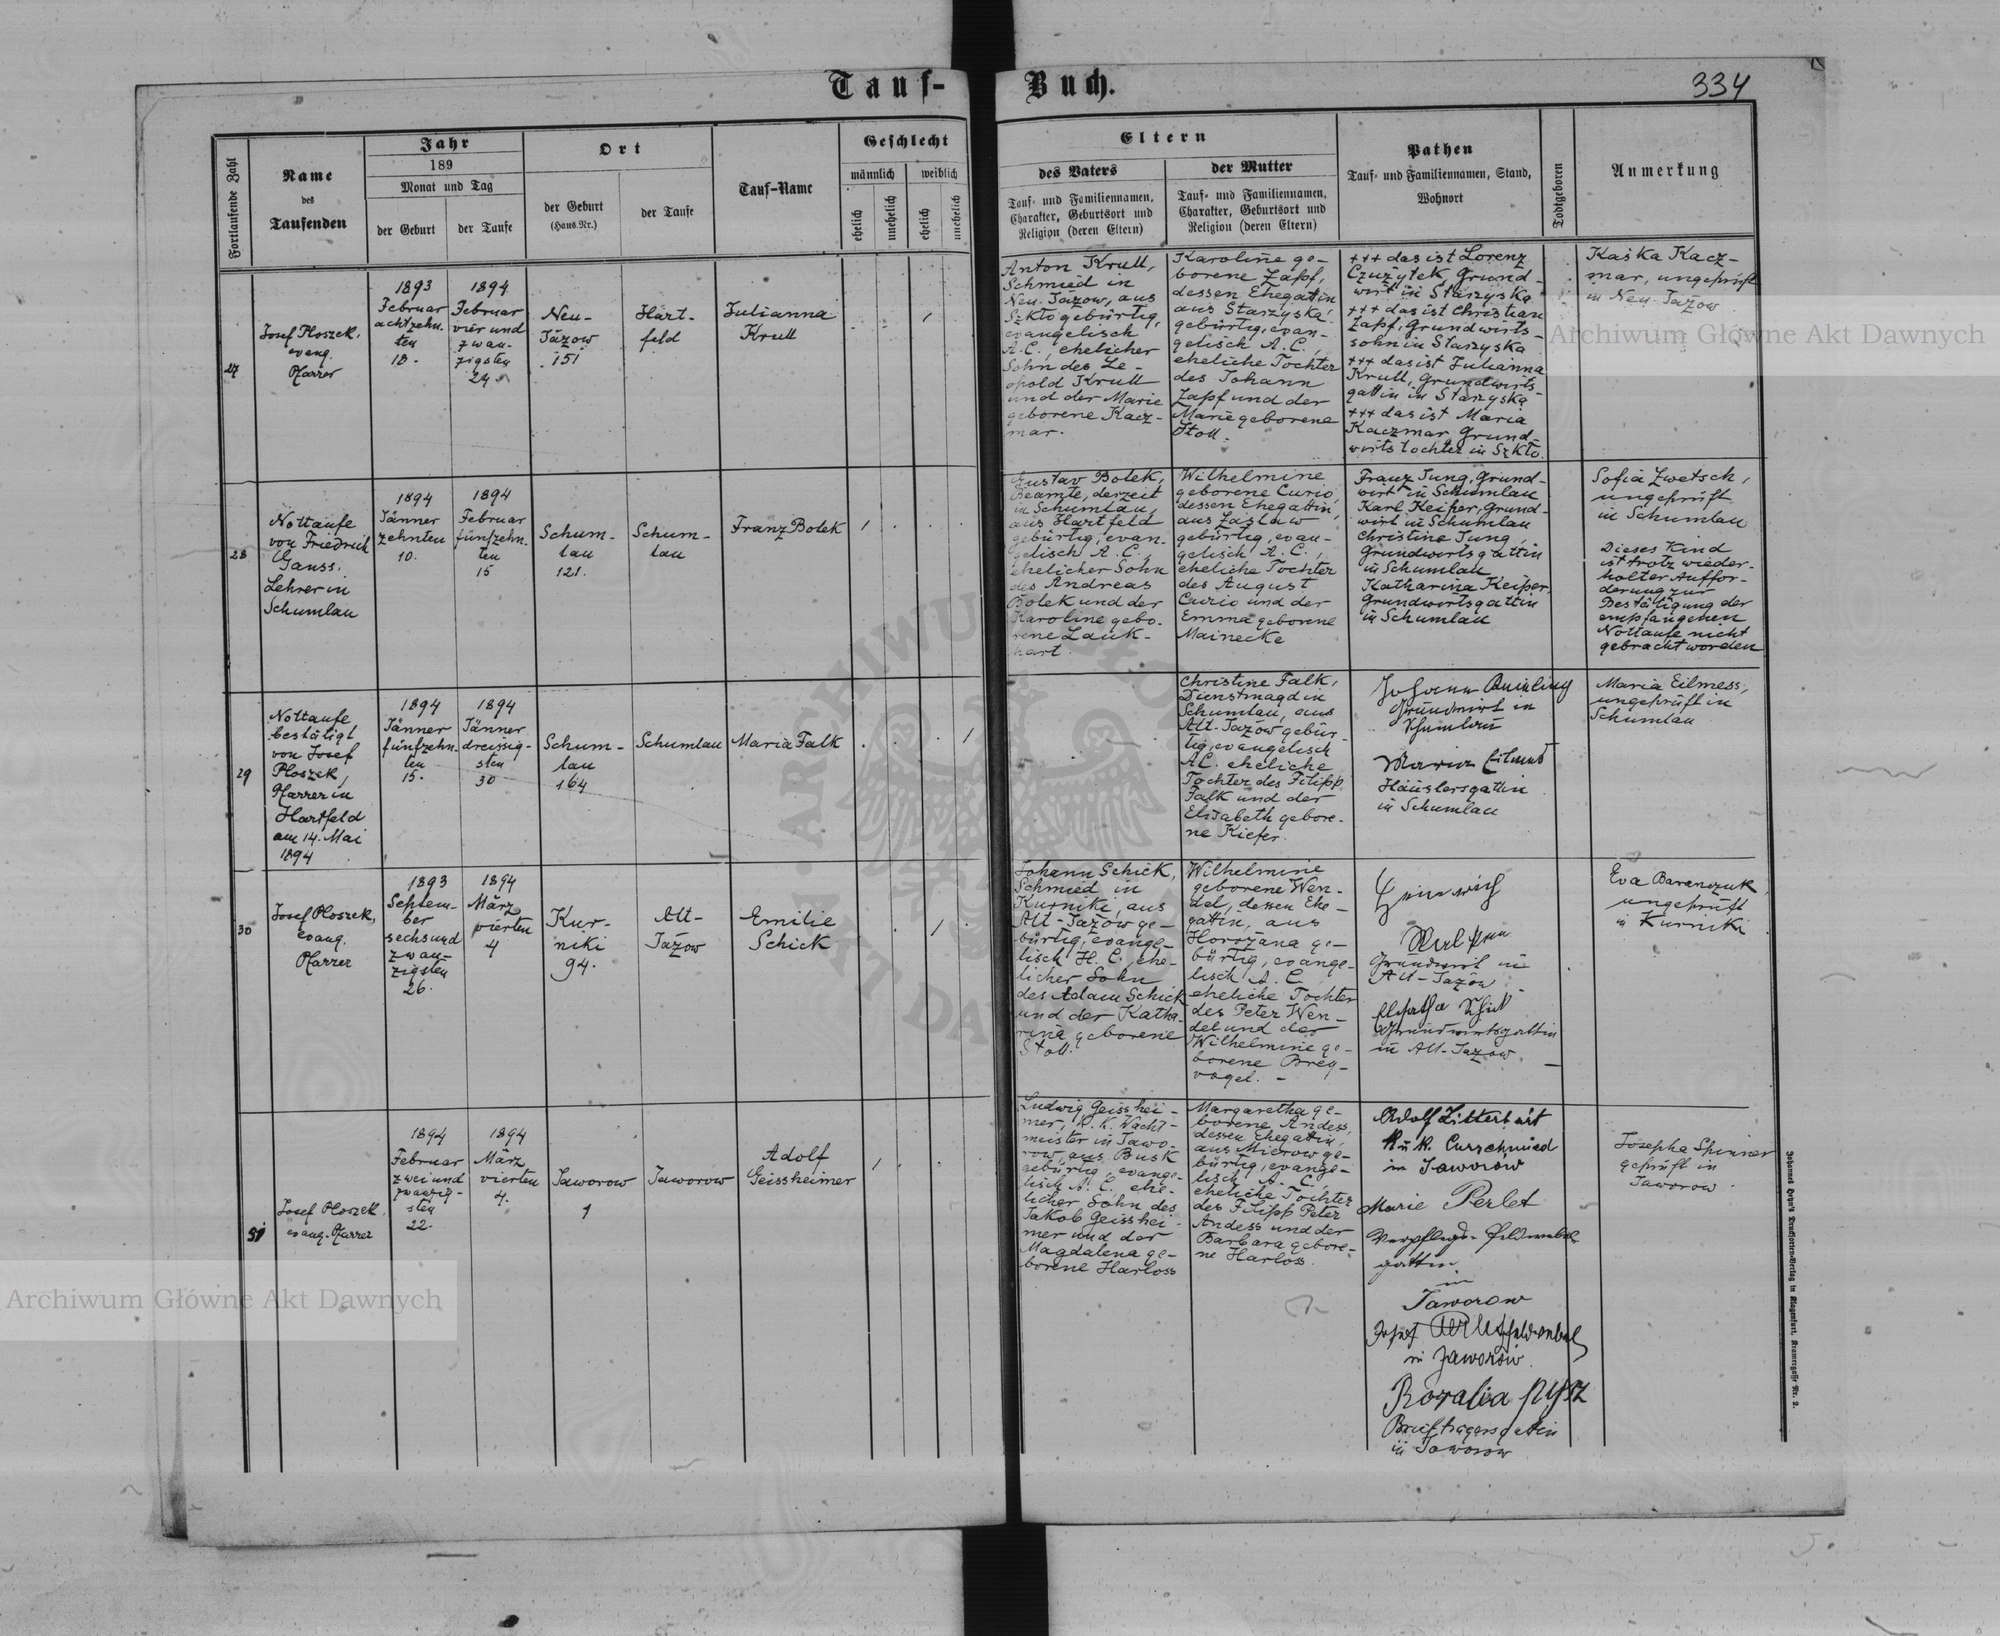 Tauf-Buch.
334
Fortlaufende Zahl
Name
des
Taufenden
Jahr
189
Monat und Tag
der Geburt
der Taufe
Ort
der Geburt
(Haus.Nr.)
der Taufe
Tauf-Name
Geschlecht
männlich
weiblich
ehelich
unehelich
ehelich
unehelich
Eltern
des Vaters
Tauf- und Familiennamen,
Charakter, Geburtsort und
Religion (deren Eltern)
der Mutter
Tauf- und Familiennamen,
Charakter, Geburtsort und
Religion (deren Eltern)
Pathen
Tauf- und Familiennamen, Stand,
Wohnort
Todtgeboren
Anmerkung
27
Josef Ploszek,
evang.
Pfarrer
1893
Februar
achtzehn-
ten
18.
1894
Februar
vier und
zwan-
zigsten
24.
Neu-
Jażow
151
Hart-
feld
Julianna
Krull
Anton Krull,
Schmied in
Neu-Jażow, aus
Szkło gebürtig,
evangelisch
A.C., ehelicher
Sohn des Le-
opold Krull
und der Marie
geborene Kacz-
mar.
Karoline ge-
borene Zapf,
dessen Ehegattin
aus Starzyska
gebürtig, evan-
gelisch A.C.,
eheliche Tochter
des Johann
Zapf und der
Marie geborene
Stoll.
+++ das ist Lorenz
Czużytek Grund-
wirt in Starzyska
+++ das ist Christian
Zapf, Grundwirts-
sohn in Starzyska
+++ das ist Julianna
Krull, Grundwirts-
gattin in Starzyska
+++ das ist Maria
Kaczmar, Grund-
wirtstochter in Szkło.
Kaśka Kacz-
mar, ungeprüft
in Neu-Jażow
28
Nottaufe
von Friedrich
Gauss,
Lehrer in
Schumlau
1894
Jänner
zehnten
10.
1894
Februar
fünfzehn-
ten
15
Schum-
lau
121.
Schum-
lau
Franz Bolek
1
Gustav Bolek,
Beamte, derzeit
in Schumlau,
aus Hartfeld
gebürtig, evan-
gelisch A.C.,
ehelicher Sohn
des Andreas
Bolek und der
Karoline gebo-
rene Lauk-
hart.
Wilhelmine
geborene Curio,
dessen Ehegattin,
aus Zaslaw
gebürtig, evan-
gelisch A.C.,
eheliche Tochter
des August
Curio und der
Emma geborene
Mainecke
Franz Jung, Grund-
wirt in Schumlau
Karl Keiper, Grund-
wirt in Schumlau
Christine Jung,
Grundwirtsgattin
in Schumlau
Katharina Keiper,
Grundwirtsgattin
in Schumlau
Sofia Zwetsch,
ungeprüft
in Schumlau
Dieses Kind
ist trotz wieder-
holter Auffor-
derung zur
Bestätigung der
empfangenen
Nottaufe nicht
gebracht worden
29
Nottaufe,
bestätigt
von Josef
Ploszek,
Pfarrer in
Hartfeld
am 14. Mai
1894
1894
Jänner
fünfzehn-
ten
15.
1894
Jänner
dreissig-
sten
30
Schum-
lau
164
Schumlau
Maria Falk
1
Christine Falk,
Dienstmagd in
Schumlau, aus
Alt-Jażow gebür-
tig, evangelisch
A.C. eheliche
Tochter des Filipp
Falk und der
Elisabeth gebore-
ne Kiefer.
Johann
Grundwirt in
Schumlau
Maria Eilmess
Häuslersgattin
in Schumlau
Maria Eilmess,
ungeprüft in
Schumlau
30
Josef Ploszek,
evang.
Pfarrer
1893
Septem-
ber
sechsund
zwan-
zigsten
26.
1894
März
vierten
4
Kur-
niki
94.
Alt-
Jażow
Emilie
Schick
1
Johann Schick,
Schmied in
Kurniki, aus
Alt-Jażow ge-
bürtig, evange-
lisch H.C., ehe-
licher Sohn
des Adam Schick
und der Katha-
rina geborene
Stoll.
Wilhelmine
geborene Wen-
del, dessen Ehe-
gattin, aus
Horozana ge-
bürtig, evange-
lisch A.C.
eheliche Tochter
des Peter Wen-
del und der
Wilhelmine ge-
borene Breg-
vogel.
Heinrich
Grundwirt in
Alt-Jazow
Schick
Grundwirtsgattin
in Alt-Jazow.
Eva Baranczuk,
ungeprüft
in Kurniki
31
Josef Ploszek,
evang. Pfarrer
1894
Februar
zwei und
zwanzig-
sten
22.
1894
März
vierten
4.
Jaworow
1
Jaworow
Adolf
Geissheimer
1
Ludwig Geisshei-
mer, K.K. Wacht-
meister in Jawo-
row, aus Busk
gebürtig, evange-
lisch A.C., ehe-
licher Sohn des
Jakob Geisshei-
mer und der
Magdalena ge-
borene Harloss
Margaretha ge-
borene Andess,
dessen Ehegattin,
aus Mierow ge-
bürtig, evange-
lisch A.C.
eheliche Tochter
des Filipp Peter
Andess und der
Barbara gebore-
ne Harloss.
Adolf
k.u.k. Curschmied
in Jaworów
Marie Perlet
Verpflegs-Feldwebels
gattin
in
Jaworow
Josef Feldwebel
in Jaworów.
Rozalia
Briefträgersgattin
in Jaworow
Josepha Spinner
geprüft in
Jaworow.
Johannes Heyn's Drucksorten-Verlag in Klagenfurt, Kramergasse Nr. 2.
Archiwum Główne Akt Dawnych
Archiwum Główne Akt Dawnych
ARCHIWUM GŁÓWNE AKT DAWNYCH